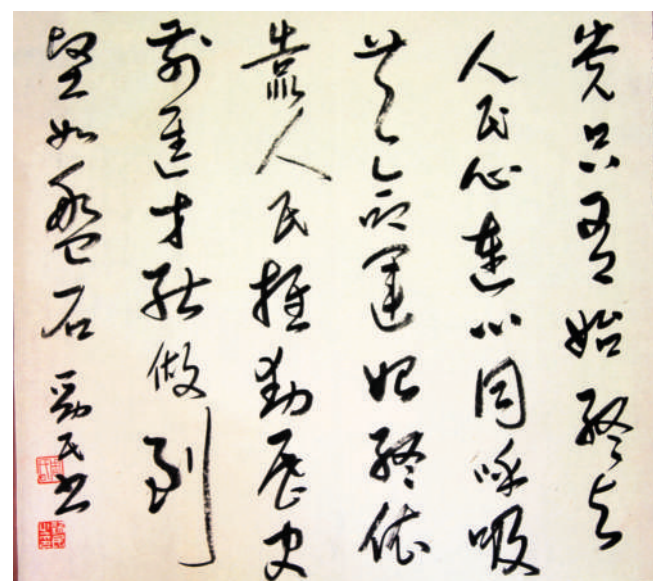 党只有始终与
人民心连心同呼吸
共命运始终依
靠人民推动历史
前进才能做到
坚如盘石 劲民书